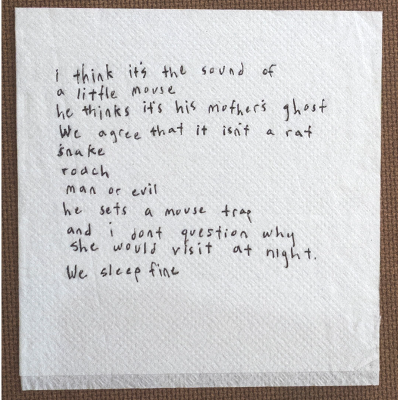 i think it's the sound of
a little mouse
he thinks it's his mother's ghost
We agree that it isn't a rat
snake
roach
man or evil
he sets a mouse trap
and i dont question why
she would visit at night.
We sleep fine